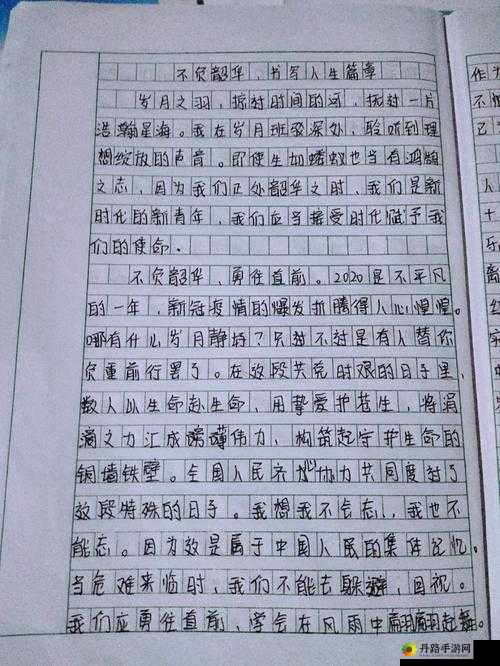 不负韶华，书写人生篇章
岁月之羽，掠过时间的河，抚过一片
浩瀚星海。我在岁月斑驳深处，聆听到理
想绽放的声音。即使生如蝼蚁也当有鸿鹄
之志，因为我们正处韶华之时，我们是新
时代的新青年，我们应当接受时代赋予我
们的使命。
不负韶华，勇往直前。2020是不平凡
的一年，新冠疫情的爆发折腾得人心惶惶。
哪有什么岁月静好？只过不过是有人替你
负重前行罢了。在这段共克时艰的日子里，
数人以生命赴生命，用挚爱护苍生，将涓
滴之力汇成磅礴伟力，构筑起守护生命的
铜墙铁壁。全国人民齐心协力共同度过了
这段特殊的日子。我想我不会忘，我也不
能忘。因为这是属于中国人民的集体记忆。
当危难来临时，我们不能去躲避，回视。
我们应勇往直前，学会在风雨中翩翩起舞。
作为
不
人
十
乐
离
红
丹路手游网